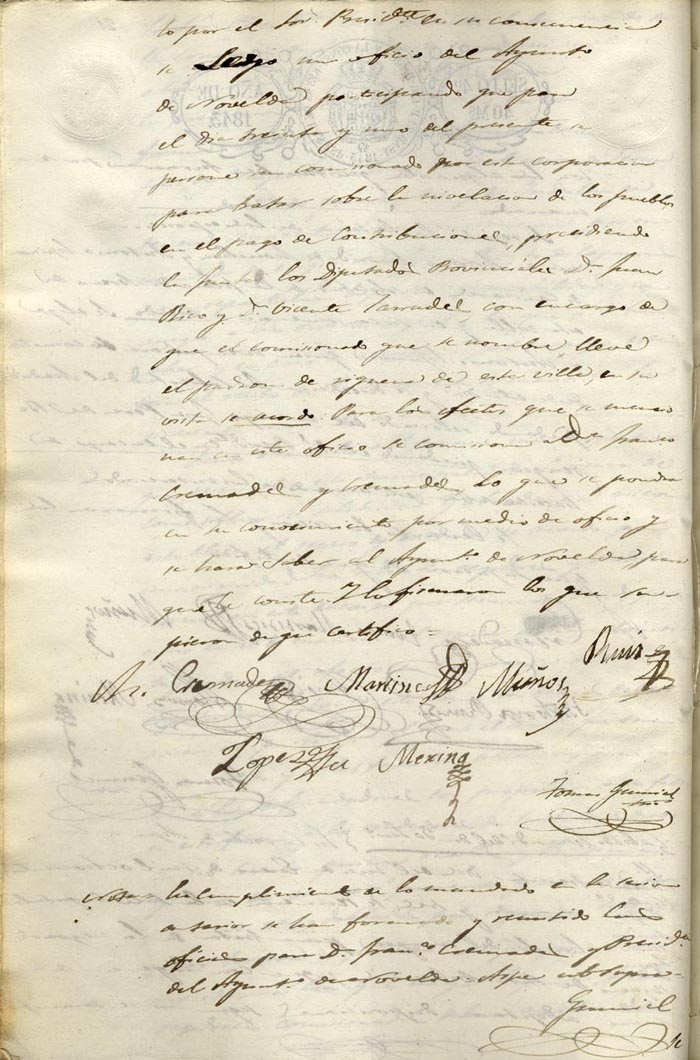 to por el Sor. Presidte. en su consecuencia
se Leyo un oficio del Ayunto
de Novelda participando que para
el dia treinta y uno del presente se
persone un comisionado por esta corporacion
para tratar sobre la nivelacion de los pueblos
en el pago de Contribuciones, presidiendo
la Junta los Diputados Provinciales Dn. Juan
Rico y Dn. Vicente Tarradel con encargo de
que el comisionado que se nombre, lleve
el padron de riqueza de esta villa, en su
vista se acordo. Para los efectos que se mencio
nan en este oficio se comisiona a Dn. Franco
Cremades y Cremades, Lo que se pondra
en su conocimiento por medio de oficio y
se hara saber al Ayunto de Novelda, para
que le conste. Y lo firmaron los que su-
pieron de que certifico =
Cremades Martinez Muños Ruiz
Lopez Merino
Tomas
Nota En cumplimiento de lo mandado en la sesion
anterior se han formado y remitido los
oficios para Dn. Franco. Cremades y Presidte
del Ayunto de Novelda. Aspe
SELLO 4
40 Ms
AÑO DE
1843